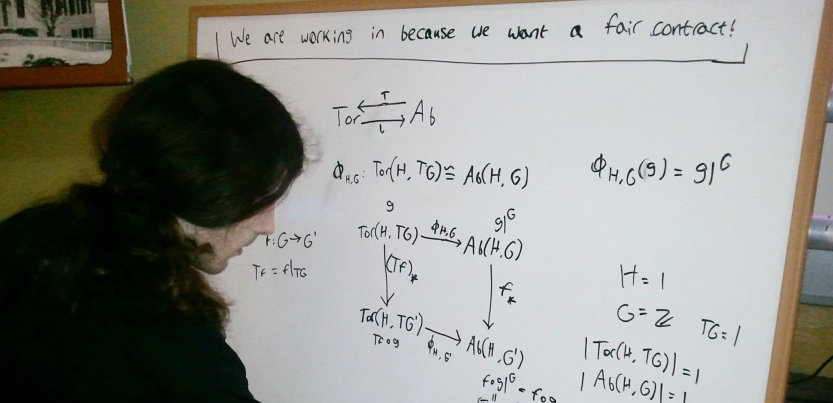 We are working in because we want a fair contract!
T
Tor ⇄ Ab
ι
ϕ_{H,G}: Tor(H, TG) ≅ Ab(H, G)
ϕ_{H,G}(g) = g|^G
g
g|^G
Tor(H, TG) → Ab(H,G)
ϕ_{H,G}
f: G→G'
Tf = f|_{TG}
(Tf)_*
f_*
Tor(H, TG') → Ab(H, G')
Tf∘g
ϕ_{H,G'}
f∘g|^G = f∘g
H = 1
G = ℤ
TG = 1
|Tor(H, TG)| = 1
|Ab(H, G)| = 1